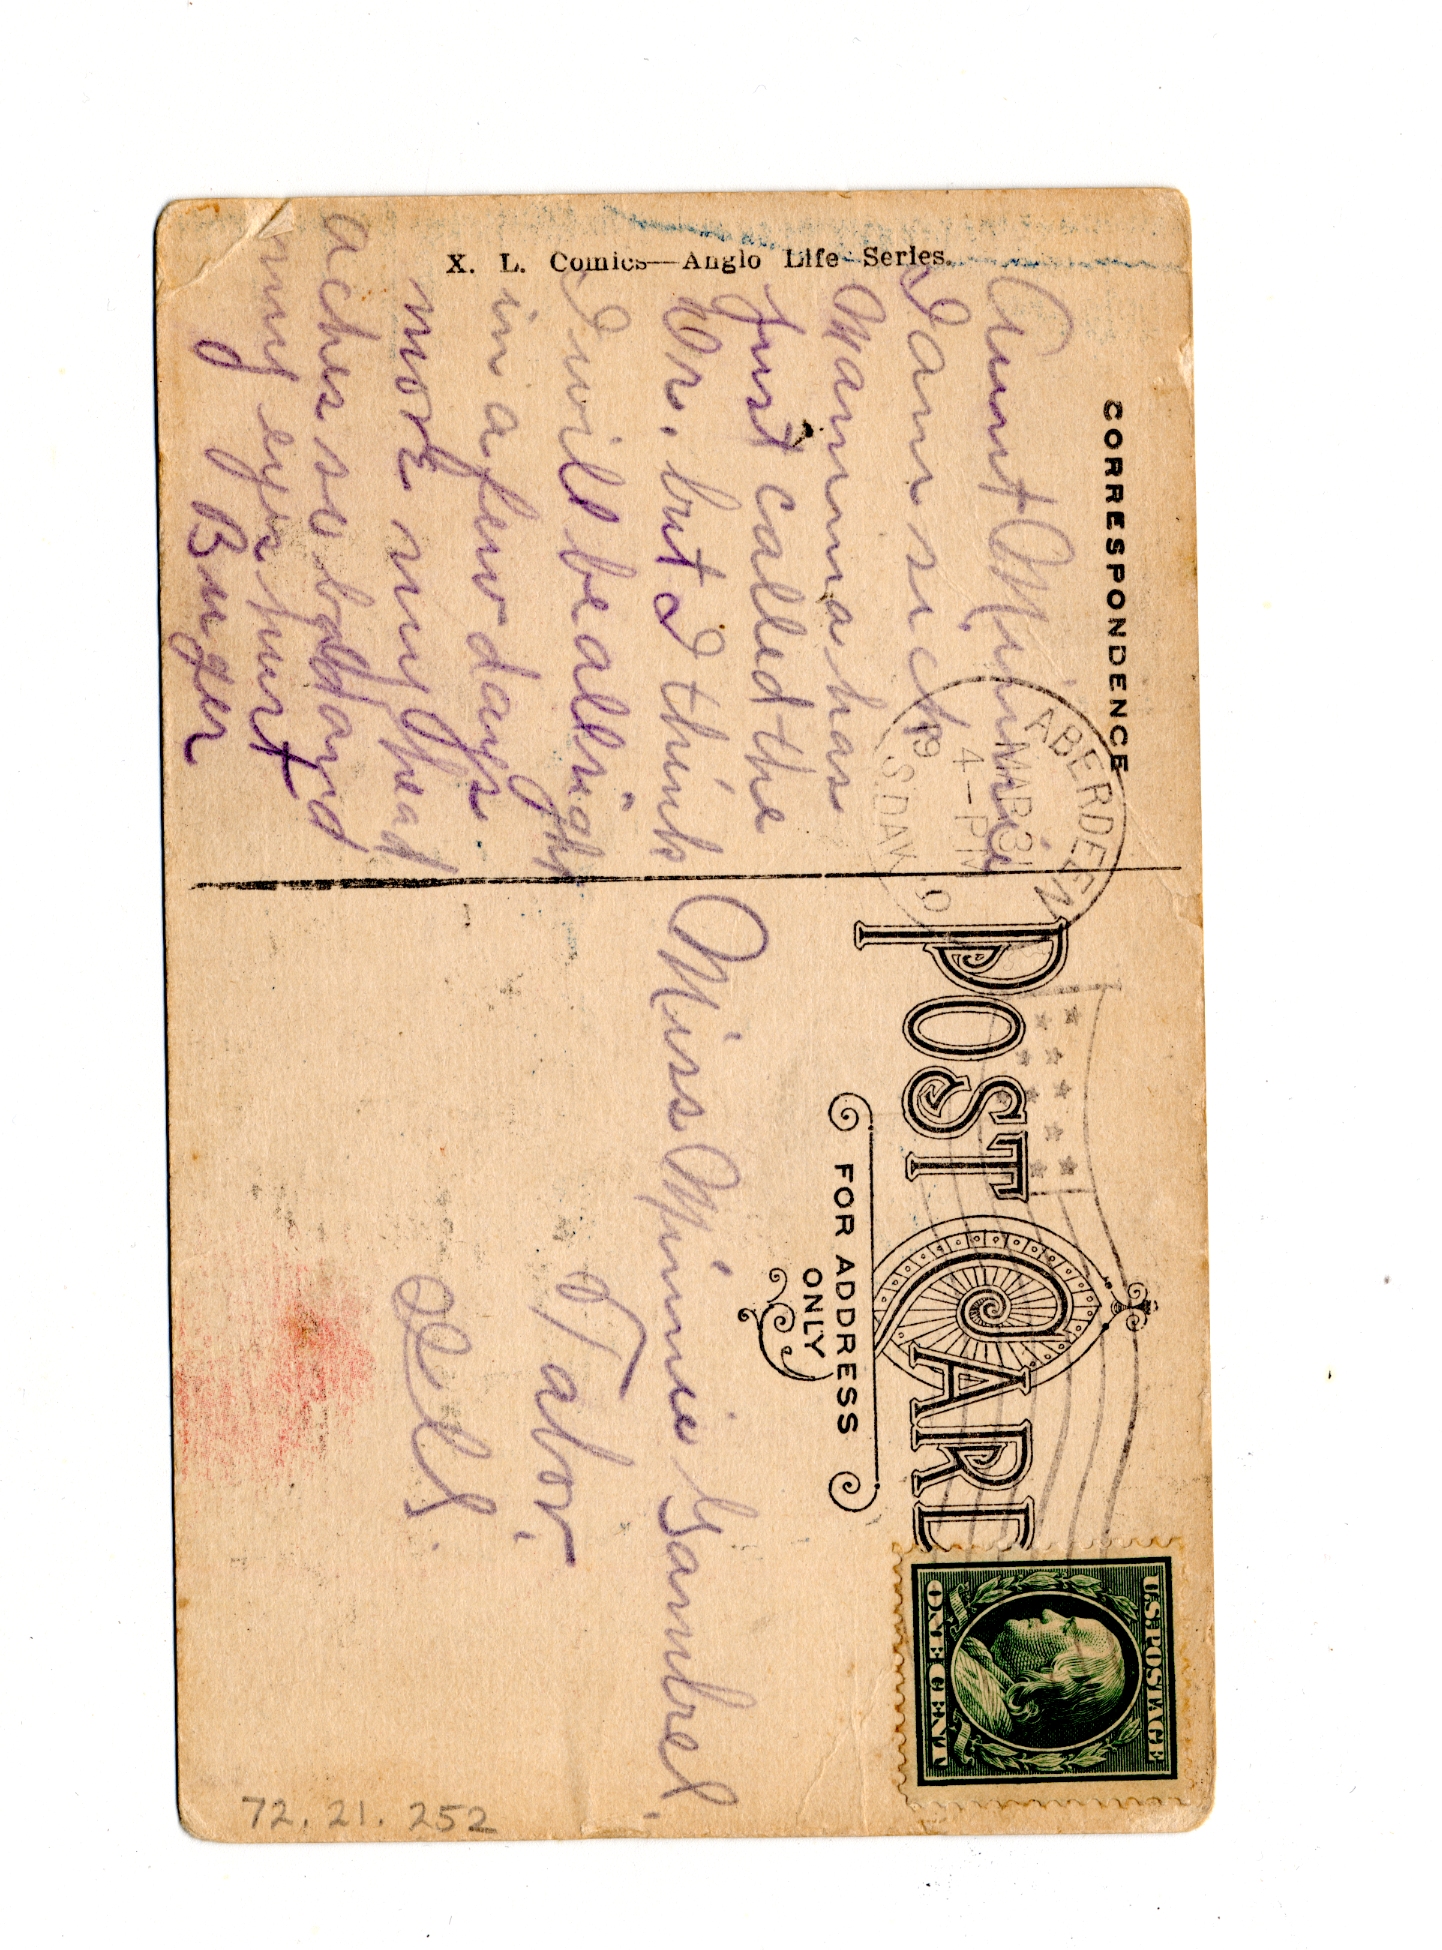 X. L. Comics—Anglo Life Series.
CORRESPONDENCE
Aunt Minnie
I am sick
Mamma has
just called the
Dr. but I think
I will be allright
in a few days
more my head
aches so bad and
my eyes hurt
Burger
ABERDEEN
MAR 31
4-PM
19
S.DAK.
POST CARD
FOR ADDRESS
ONLY
Miss Minnie Gambrel.
Tabor.
U.S. POSTAGE
ONE CENT
72.21.252